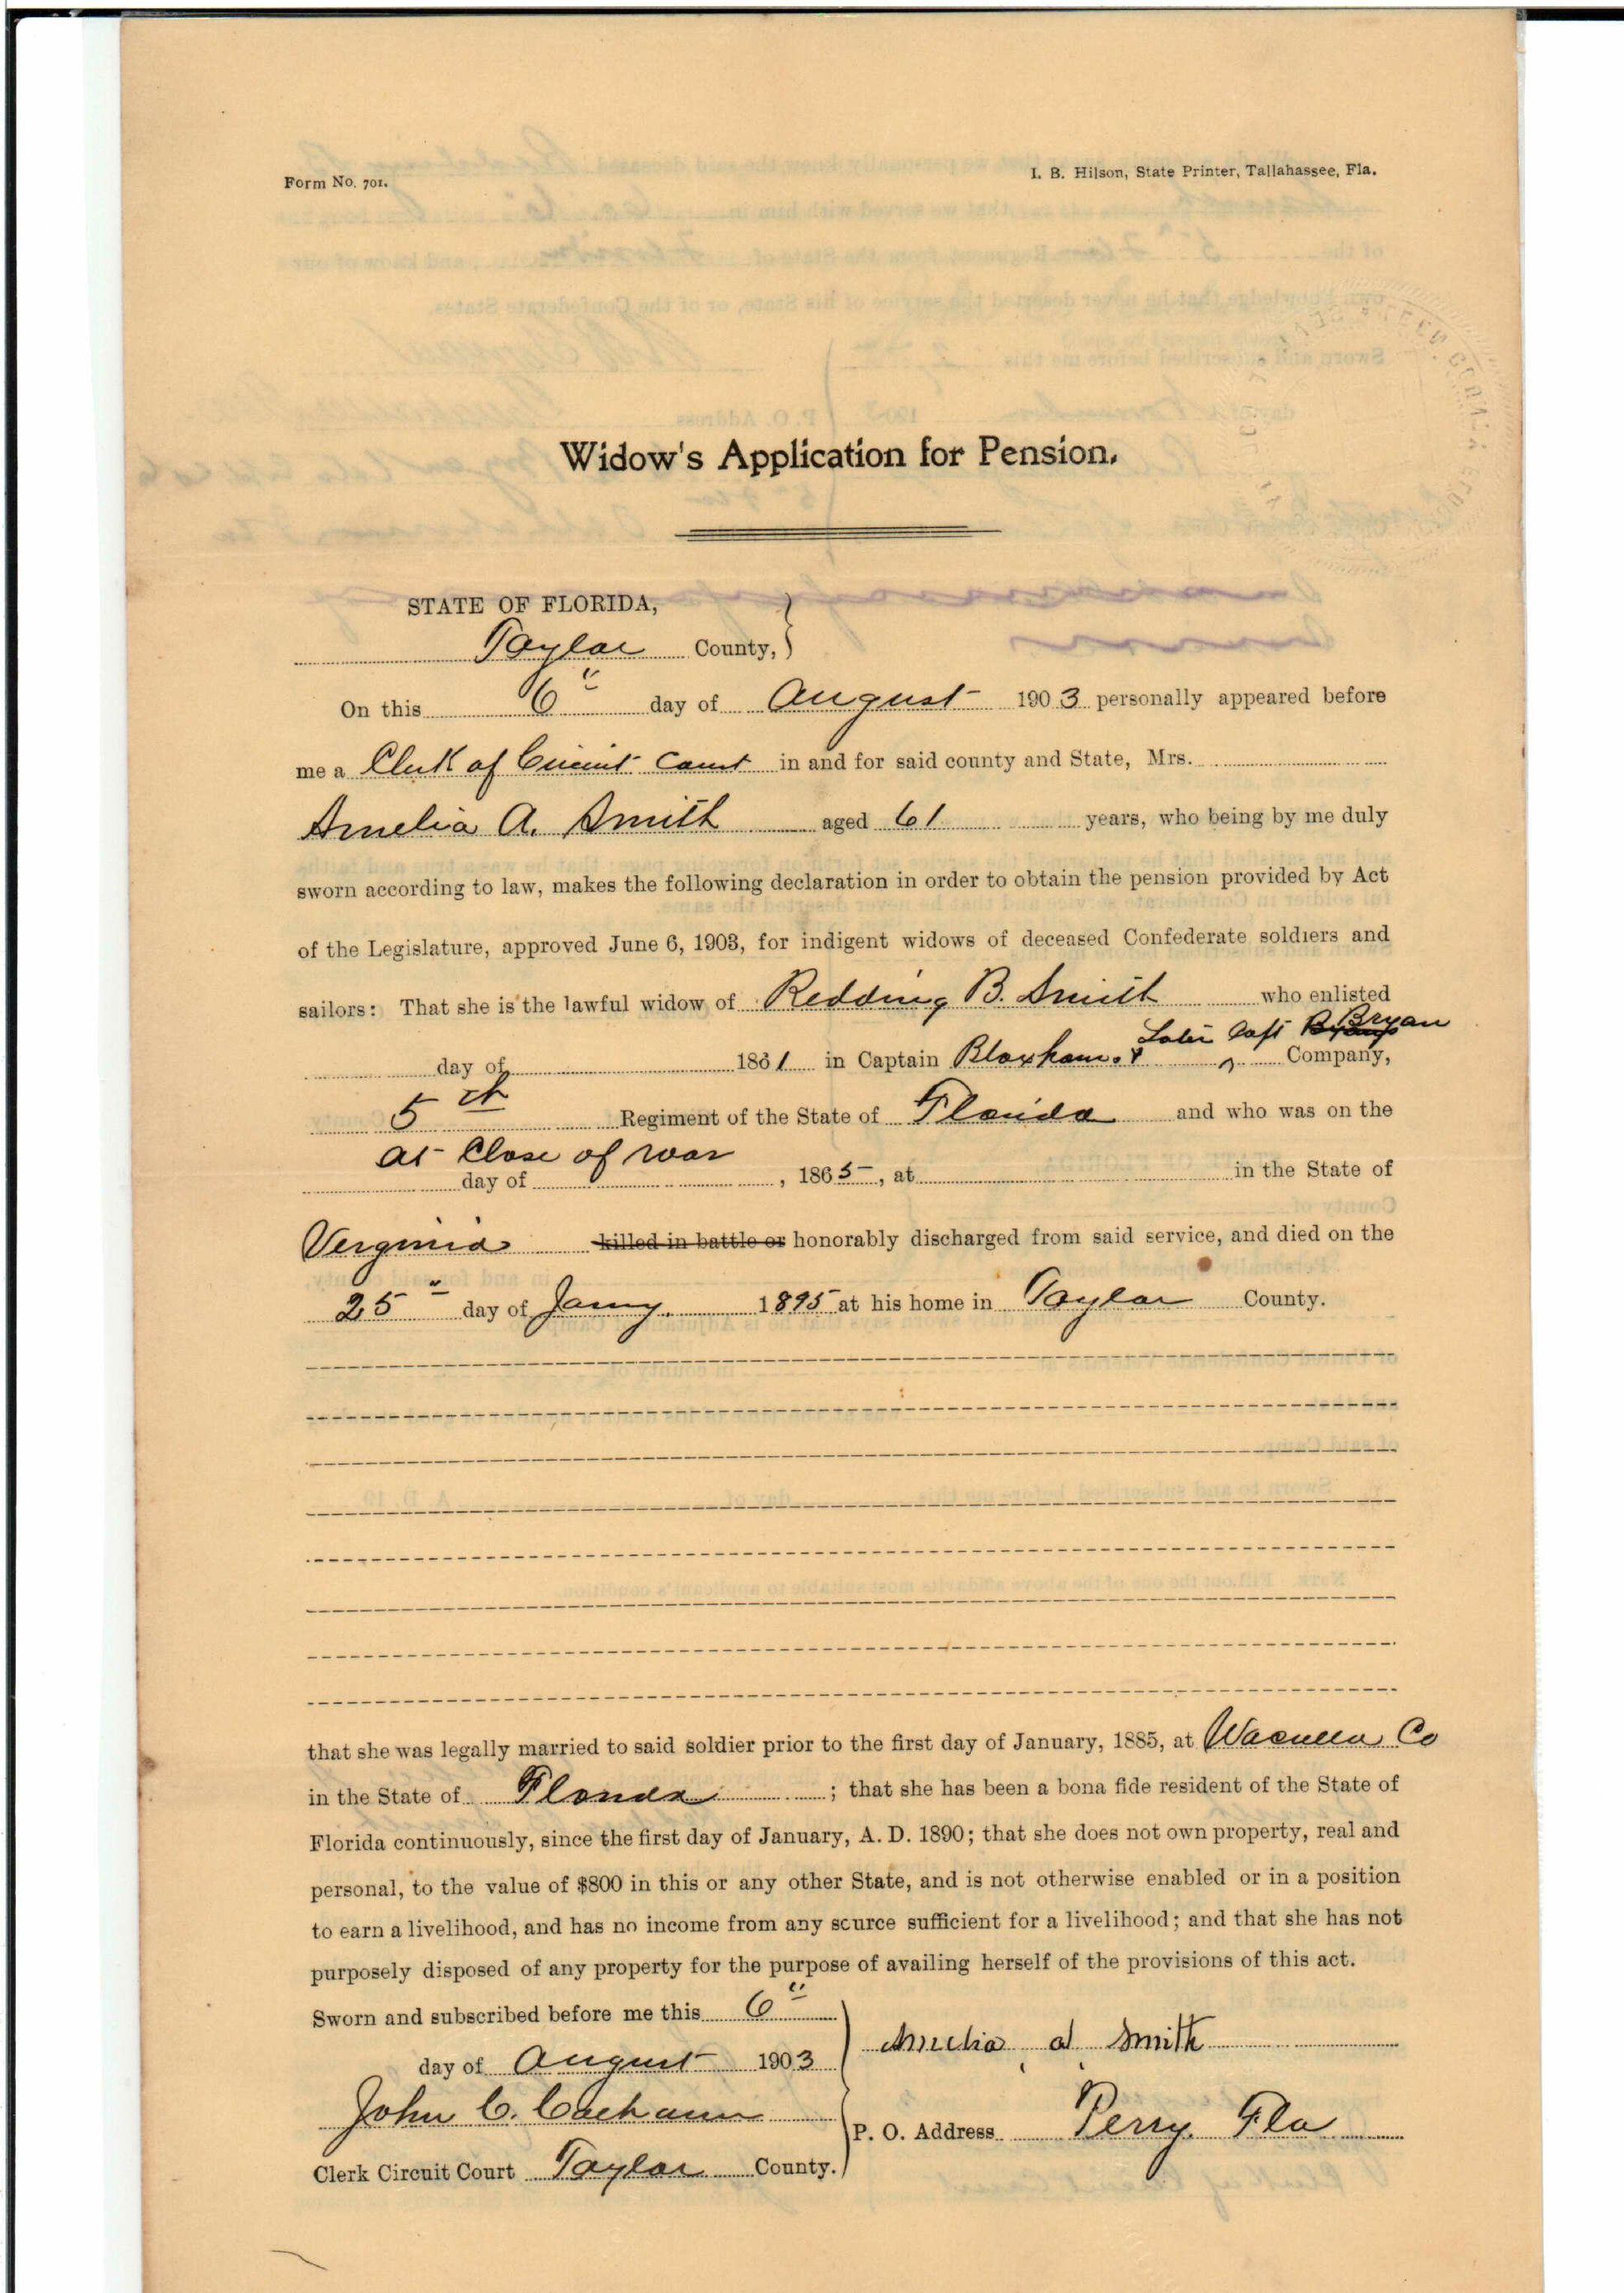 Form No. 701.
I. B. Hilson, State Printer, Tallahassee, Fla.
Widow's Application for Pension.
STATE OF FLORIDA,
Taylor County,
On this 6" day of August 1903 personally appeared before
me a Clerk of Circuit Court in and for said county and State, Mrs.
Amelia A. Smith aged 61 years, who being by me duly
sworn according to law, makes the following declaration in order to obtain the pension provided by Act
of the Legislature, approved June 6, 1903, for indigent widows of deceased Confederate soldiers and
sailors: That she is the lawful widow of Redding B. Smith who enlisted
Later Capt Bryan
day of 1861 in Captain Bloxham. & Company,
5th Regiment of the State of Florida and who was on the
at Close of war
day of , 1865, at in the State of
Verginia killed in battle or honorably discharged from said service, and died on the
25" day of Jany. 1895 at his home in Taylor County.
that she was legally married to said soldier prior to the first day of January, 1885, at Waculla Co
in the State of Florida ; that she has been a bona fide resident of the State of
Florida continuously, since the first day of January, A. D. 1890; that she does not own property, real and
personal, to the value of $800 in this or any other State, and is not otherwise enabled or in a position
to earn a livelihood, and has no income from any source sufficient for a livelihood; and that she has not
purposely disposed of any property for the purpose of availing herself of the provisions of this act.
Sworn and subscribed before me this 6"
day of August 1903
Amelia A Smith
John C. Calhoun
P. O. Address Perry Fla
Clerk Circuit Court Taylor County.